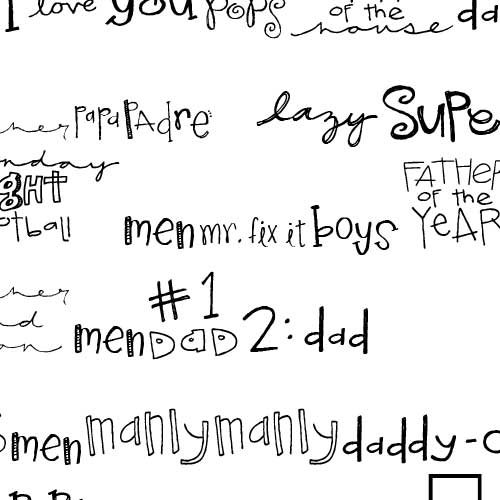 I love you pops of the house da
her papa PAdre lazy SUPE
nday
ght FATHER
otball men mr. fix it boys of the YEAR
her #1
nd men DAD 2: dad
on
men manly manly daddy-o